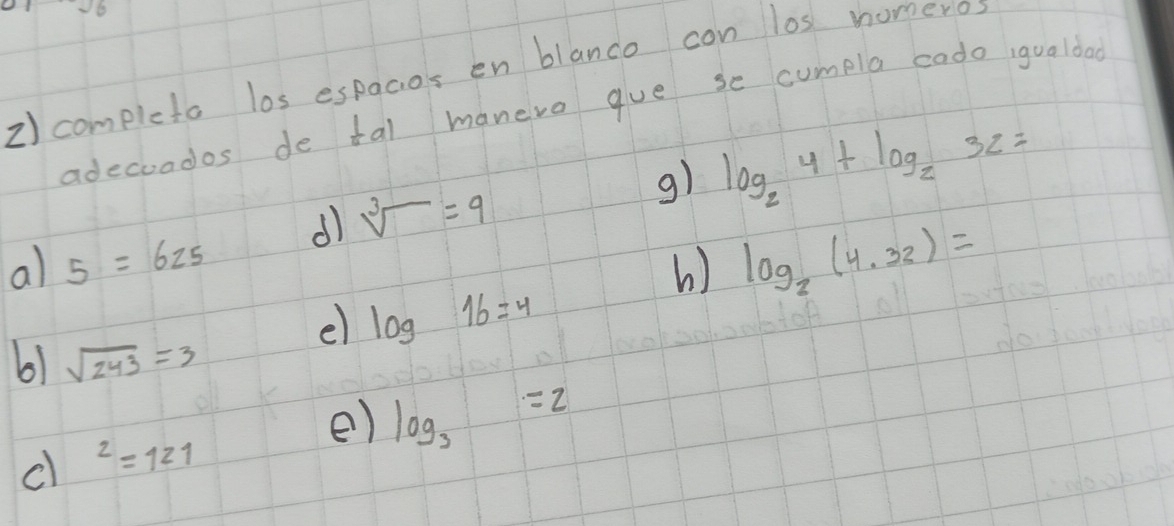 2) completa los espacios en blanco con los numeros
adecuados de tal manera que se cumpla cada igualdad
a) 5 = 625
b) √243 = 3
c) ² = 121
d) ³√ = 9
e) log 16 = 4
e) log₃ = 2
g) log₂ 4 + log₂ 32 =
h) log₂ (4.32) =